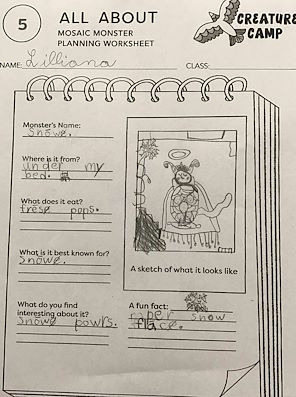 5
ALL ABOUT
MOSAIC MONSTER
PLANNING WORKSHEET
CREATURE
CAMP
NAME: Lilliana
CLASS:
Monster's Name:
Snowe.
Where is it from?
under my
bed.
What does it eat?
frese pops.
What is it best known for?
Snowe.
What do you find
interesting about it?
Snowe powrs.
A sketch of what it looks like
A fun fact:
snow
flace.